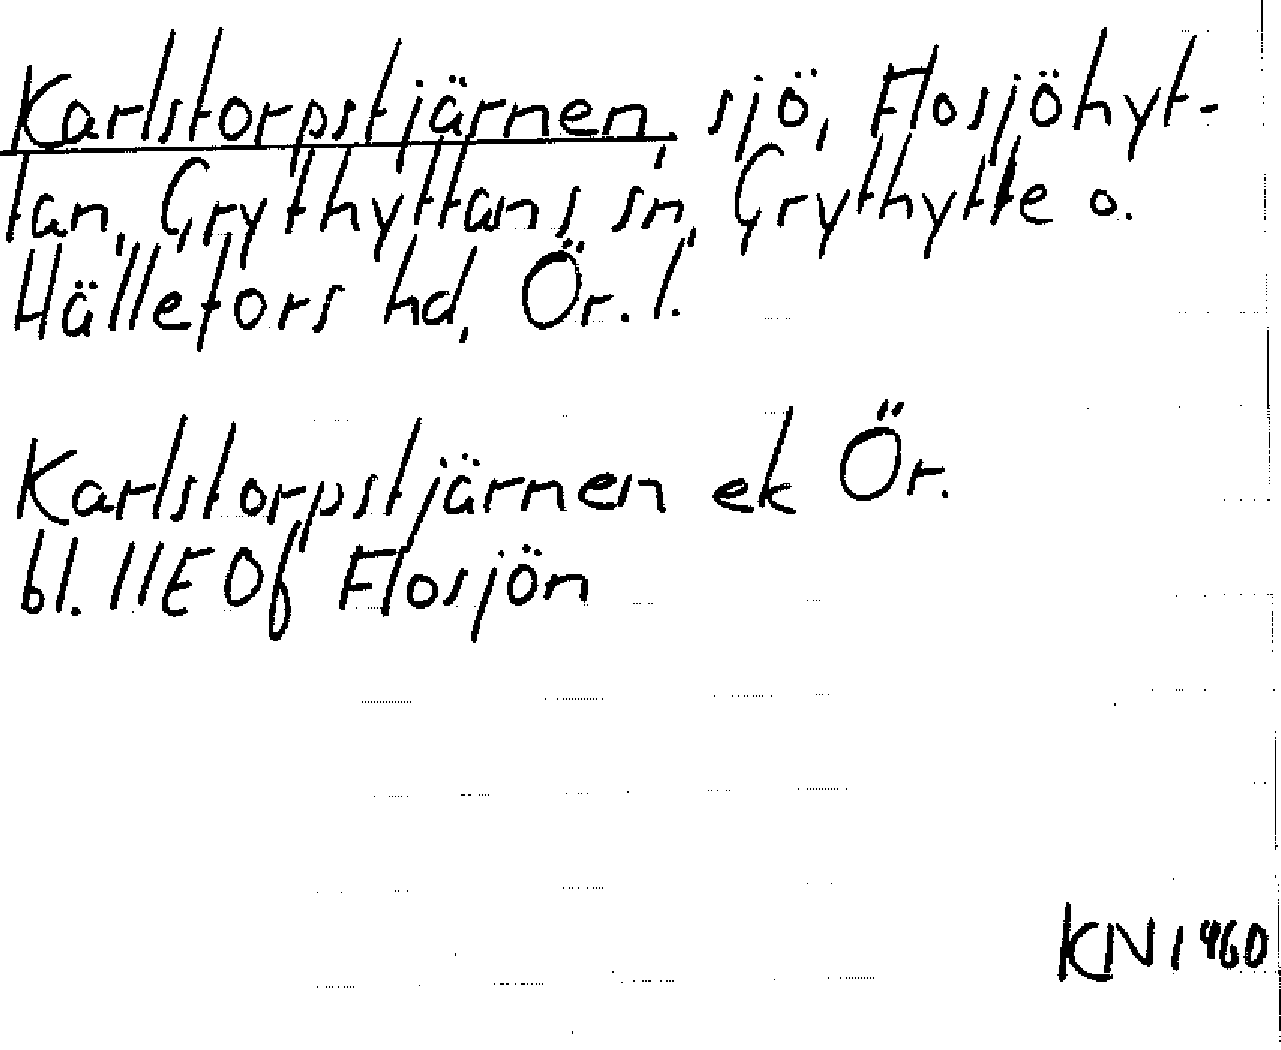 Karlstorpstjärnen, sjö, Flosjöhyt-
tan, Grythyttans sn, Grythytte o.
Hällefors hd, Ör. l.
Karlstorpstjärnen ek Ör.
bl. 11E 0f Flosjön
KN 1960